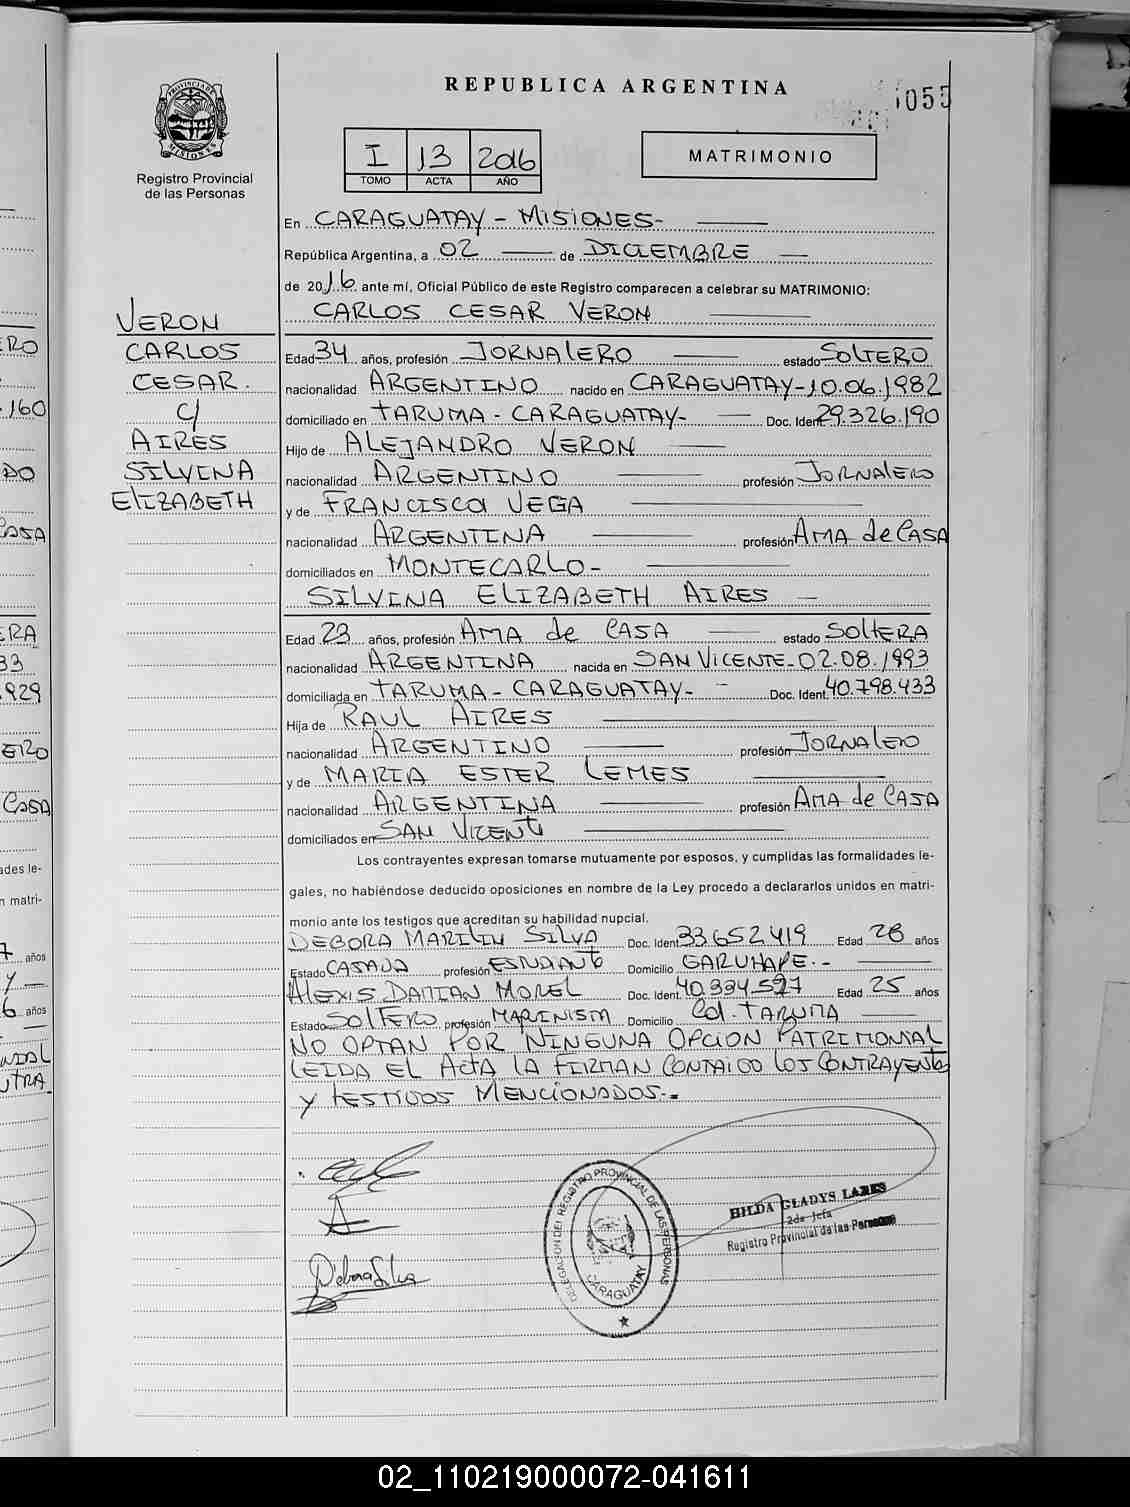 REPUBLICA ARGENTINA
055
PROVINCIA DE MISIONES
Registro Provincial
de las Personas
I 13 2016
TOMO ACTA AÑO
MATRIMONIO
En CARAGUATAY - MISIONES-
República Argentina, a 02 de DICIEMBRE
de 2016 ante mí, Oficial Público de este Registro comparecen a celebrar su MATRIMONIO:
CARLOS CESAR VERON
VERON
CARLOS
CESAR.
c/
AIRES
SILVINA
ElIZABETH
Edad 34 años, profesión JORNALERO estado SOLTERO
nacionalidad ARGENTINO nacido en CARAGUATAY-10.06.1982
domiciliado en TARUMA - CARAGUATAY- Doc. Ident 29.326.190
Hijo de ALEJANDRO VERON
nacionalidad ARGENTINO profesión JORNALERO
y de FRANCISCA VEGA
nacionalidad ARGENTINA profesión AMA de CASA
domiciliados en MONTECARLO-
SILVINA ELIZABETH AIRES -
Edad 23 años, profesión AMA de CASA estado SOLTERA
nacionalidad ARGENTINA nacida en SAN VICENTE-02.08.1993
domiciliada en TARUMA- CARAGUATAY- Doc. Ident. 40.798.433
Hija de RAUL AIRES
nacionalidad ARGENTINO profesión JORNALERO
y de MARIA ESTER LEMES
nacionalidad ARGENTINA profesión AMA de CASA
domiciliados en SAN VICENTE
Los contrayentes expresan tomarse mutuamente por esposos, y cumplidas las formalidades le-
gales, no habiéndose deducido oposiciones en nombre de la Ley procedo a declararlos unidos en matri-
monio ante los testigos que acreditan su habilidad nupcial.
DEBORA MARILIN SILVA Doc. Ident. 33652419 Edad 28 años
Estado CASADA profesión ESTUDIANTE Domicilio GARUHAPE.-
ALEXIS DAMIAN MOREL Doc. Ident. 40.334.527 Edad 25 años
Estado SOLTERO profesión MAQUINISTA Domicilio Col. TARUMA
NO OPTAN POR NINGUNA OPCION PATRIMONIAL
LEIDA EL ACTA LA FIRMAN CONMIGO LOS CONTRAYENTES
Y TESTIGOS MENCIONADOS.-
Debora Silva
DELEGACION DEL REGISTRO PROVINCIAL DE LAS PERSONAS
CARAGUATAY
HILDA GLADYS LARES
2da Jefa
Registro Provincial de las Personas
02_110219000072-041611